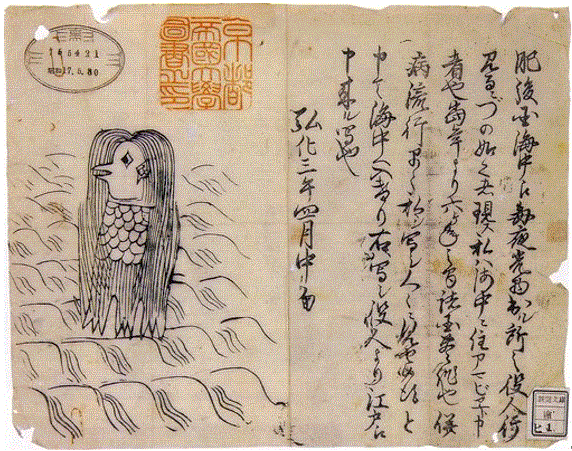 肥後国海中え毎夜光物出ル所之役人行
見るニづの如く者現ス私ハ海中ニ住アマビヱト申
者也当年より六ヶ年之間諸国豊作也併
病流行早々私ヲ写シ人々ニ見セ候得と
申て海中へ入けり右写シ役人より江戸え
申来ル写也
弘化三年四月中旬
京都
帝國大學
圖書之印
昭和17.5.30
新聞文庫